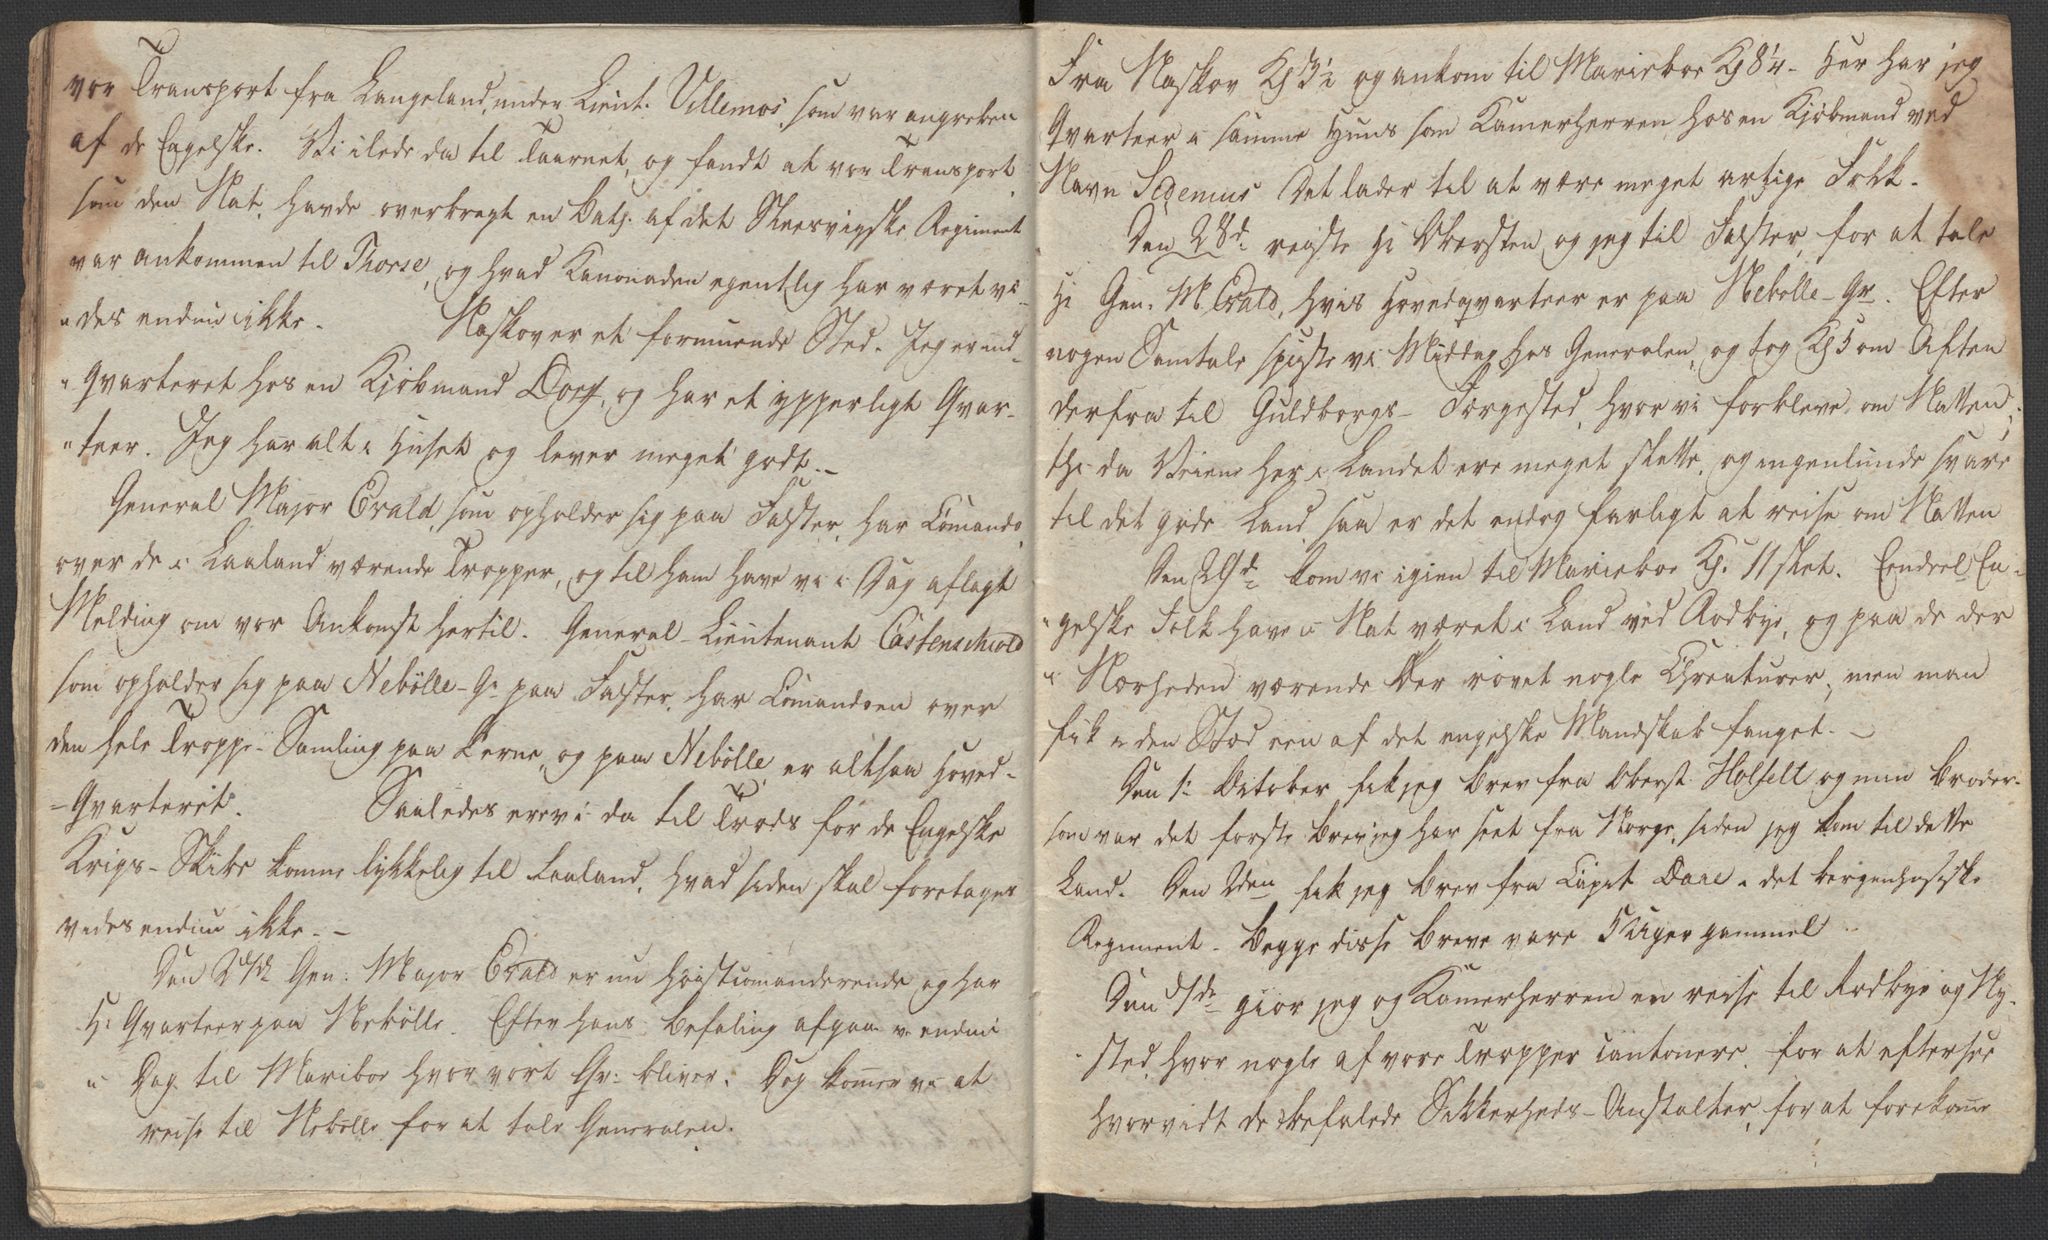 vor Transport fra Langeland, under Lieut. Villemos, som var angreben
af de Engelske. Vi ilede da til Taarnet, og fandt at vor Transport
som den Nat havde overbragt en Batj. af det Slesvigske Regiment
var ankommen til Thorse, og hvad Kanonaden egentlig har været vi-
"des endnu ikke. Naskov er et formuende Sted. Jeg er ind-
"qvarteret hos en Kjøbmand Dorff, og har et ypperligt Qvar-
"teer. Jeg har alt i Huset og lever meget godt.-
General Major Evald, som opholder sig paa Falster, har Comando
over de i Laaland værende Tropper, og til ham have vi i Dag aflagt
Melding om vor Ankomst hertil. General-Lieutenant Castenschiold
som opholder sig paa Nebölle-Gr paa Falster, har Comandoen over
den hele Troppe-Samling paa Øerne, og paa Nebölle er altsaa Hoved-
-Qvarteret. Saaledes ere vi da til Trods for de Engelske
Krigs-Skibe komne lykkelig til Laaland, hvad siden skal foretages
vides endnu ikke.-
Gen: Major Evald er nu høistcomanderende og har
H: Qvarteer paa Nebölle. Efter hans Befaling afgaa vi endnu
i Dag til Mariboe hvor vort Qr: bliver. Dog kommer vi at
reise til Nebölle for at tale Generalen.
Fra Naskov Kl 3½ og ankom til Marieboe Kl 8¼- Her har jeg
Qvarteer i samme Huus som Kamerherren, hos en Kjøbmand ved
Navn Sidenius Det lader til at være meget artige Folk.
Den 28d: reiste Hr Obersten og jeg til Falster, for at tale
Hr Gen. M. Evald, hvis Hovedqvarteer er paa Nebølle-Gr. Efter
nogen Samtale spiste vi Middag hos Generalen, og tog Kl 5 om Aften
derfra til Guldborgs-Færgested, hvor vi forbleve om Natten;
thi da Veiene her i Landet ere meget slette, og ingenlunde svare
til det gode Land, saa er det endog farligt at reise om Natten
Den 29d: kom vi igien til Marieboe Kl. 11 slet. Eendeel En-
"gelske Folk have i Nat været i Land ved Rodbye, og paa de der
i Nærheden værende Øer røvet nogle Chreaturer, men man
fik i den Sted een af det engelske Mandskab fanget.-
Den 1: October fik jeg Brev fra Oberst Holfelt og min Broder-
som var det forste Brev jeg har seet fra Norge, siden jeg kom til dette
Land. Den 2den fik jeg Brev fra Capit Daae i det bergenhusiske
Regiment. Begge disse Breve vare 5 Uger gammel
gior jeg og Kamerherren en reise til Rodbye og Ny-
"sted, hvor nogle af vore Tropper cantonere, for at eftersee
hvorvidt de befalede Sikkerheds-Anstalter, for at forekomme